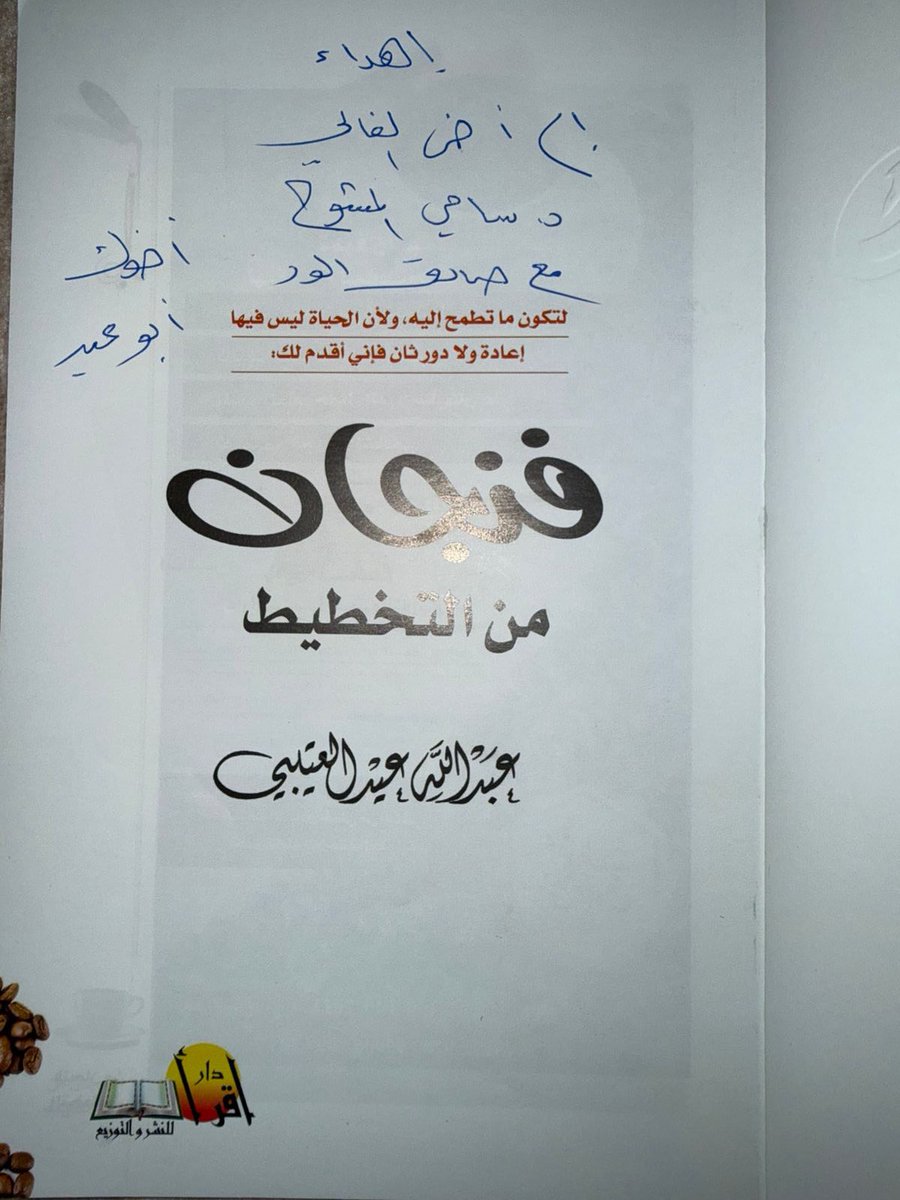 إهداء
إلى أخي الغالي
د. سامي
مع صادق الود
أخوك
أبو عيد
لتكون ما تطمح إليه، ولأن الحياة ليس فيها
إعادة ولا دور ثان فإني أقدم لك:
فنجان
من التخطيط
عبد الله عيد العتيبي
دار
اقرأ
للنشر والتوزيع